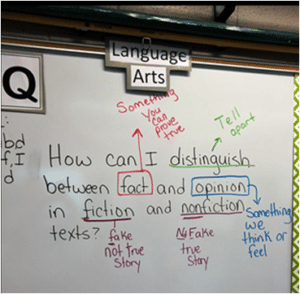 Language
Arts
Q
Something
you
can
prove
true
Tell
apart
bd
f, I
d
How can I distinguish
between fact and opinion
in fiction and nonfiction
texts?
Something
we
think or
feel
fake
not true
story
No Fake
true
Story